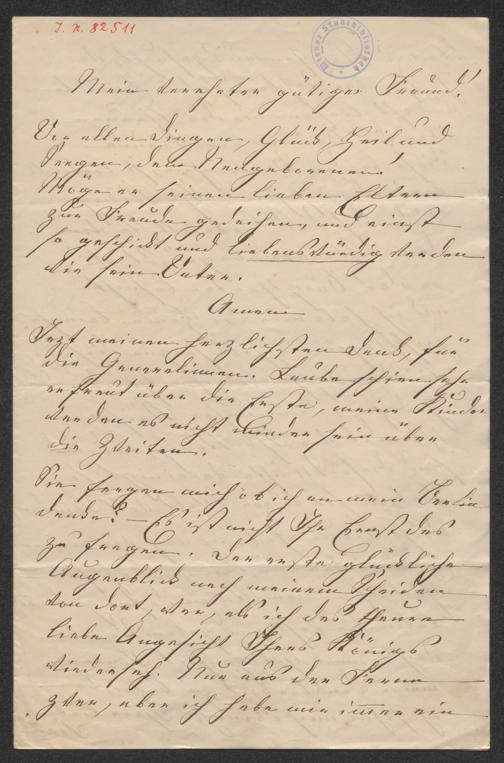 J. N. 82511
Wiener Stadtbibliothek
Mein verehrter gütiger Freund!
Vor allen Dingen, Glück, Heil und
Segen, dem Neugeborenen!
Möge er seinen lieben Eltern
zur Freude gedeihen, und einst
so geschickt und liebenswürdig werden
wie sein Vater.
Amen
Jezt meinen herzlichsten Dank, für
die Generalinnen. Laube schien sehr
erfreut über die Erste, meine Kinder
werden es nicht minder sein über
die Zweiten.
Sie fragen mich ob ich an mein Berlin
denke? – Es ist nicht Ihr Ernst das
zu fragen. Der erste glückliche
Augenblick nach meinem Scheiden
von dort, war, als ich das theure
liebe Angesicht Ihres Königs
wiedersah. Nur aus der Ferne
zwar, aber ich habe mir immer ein